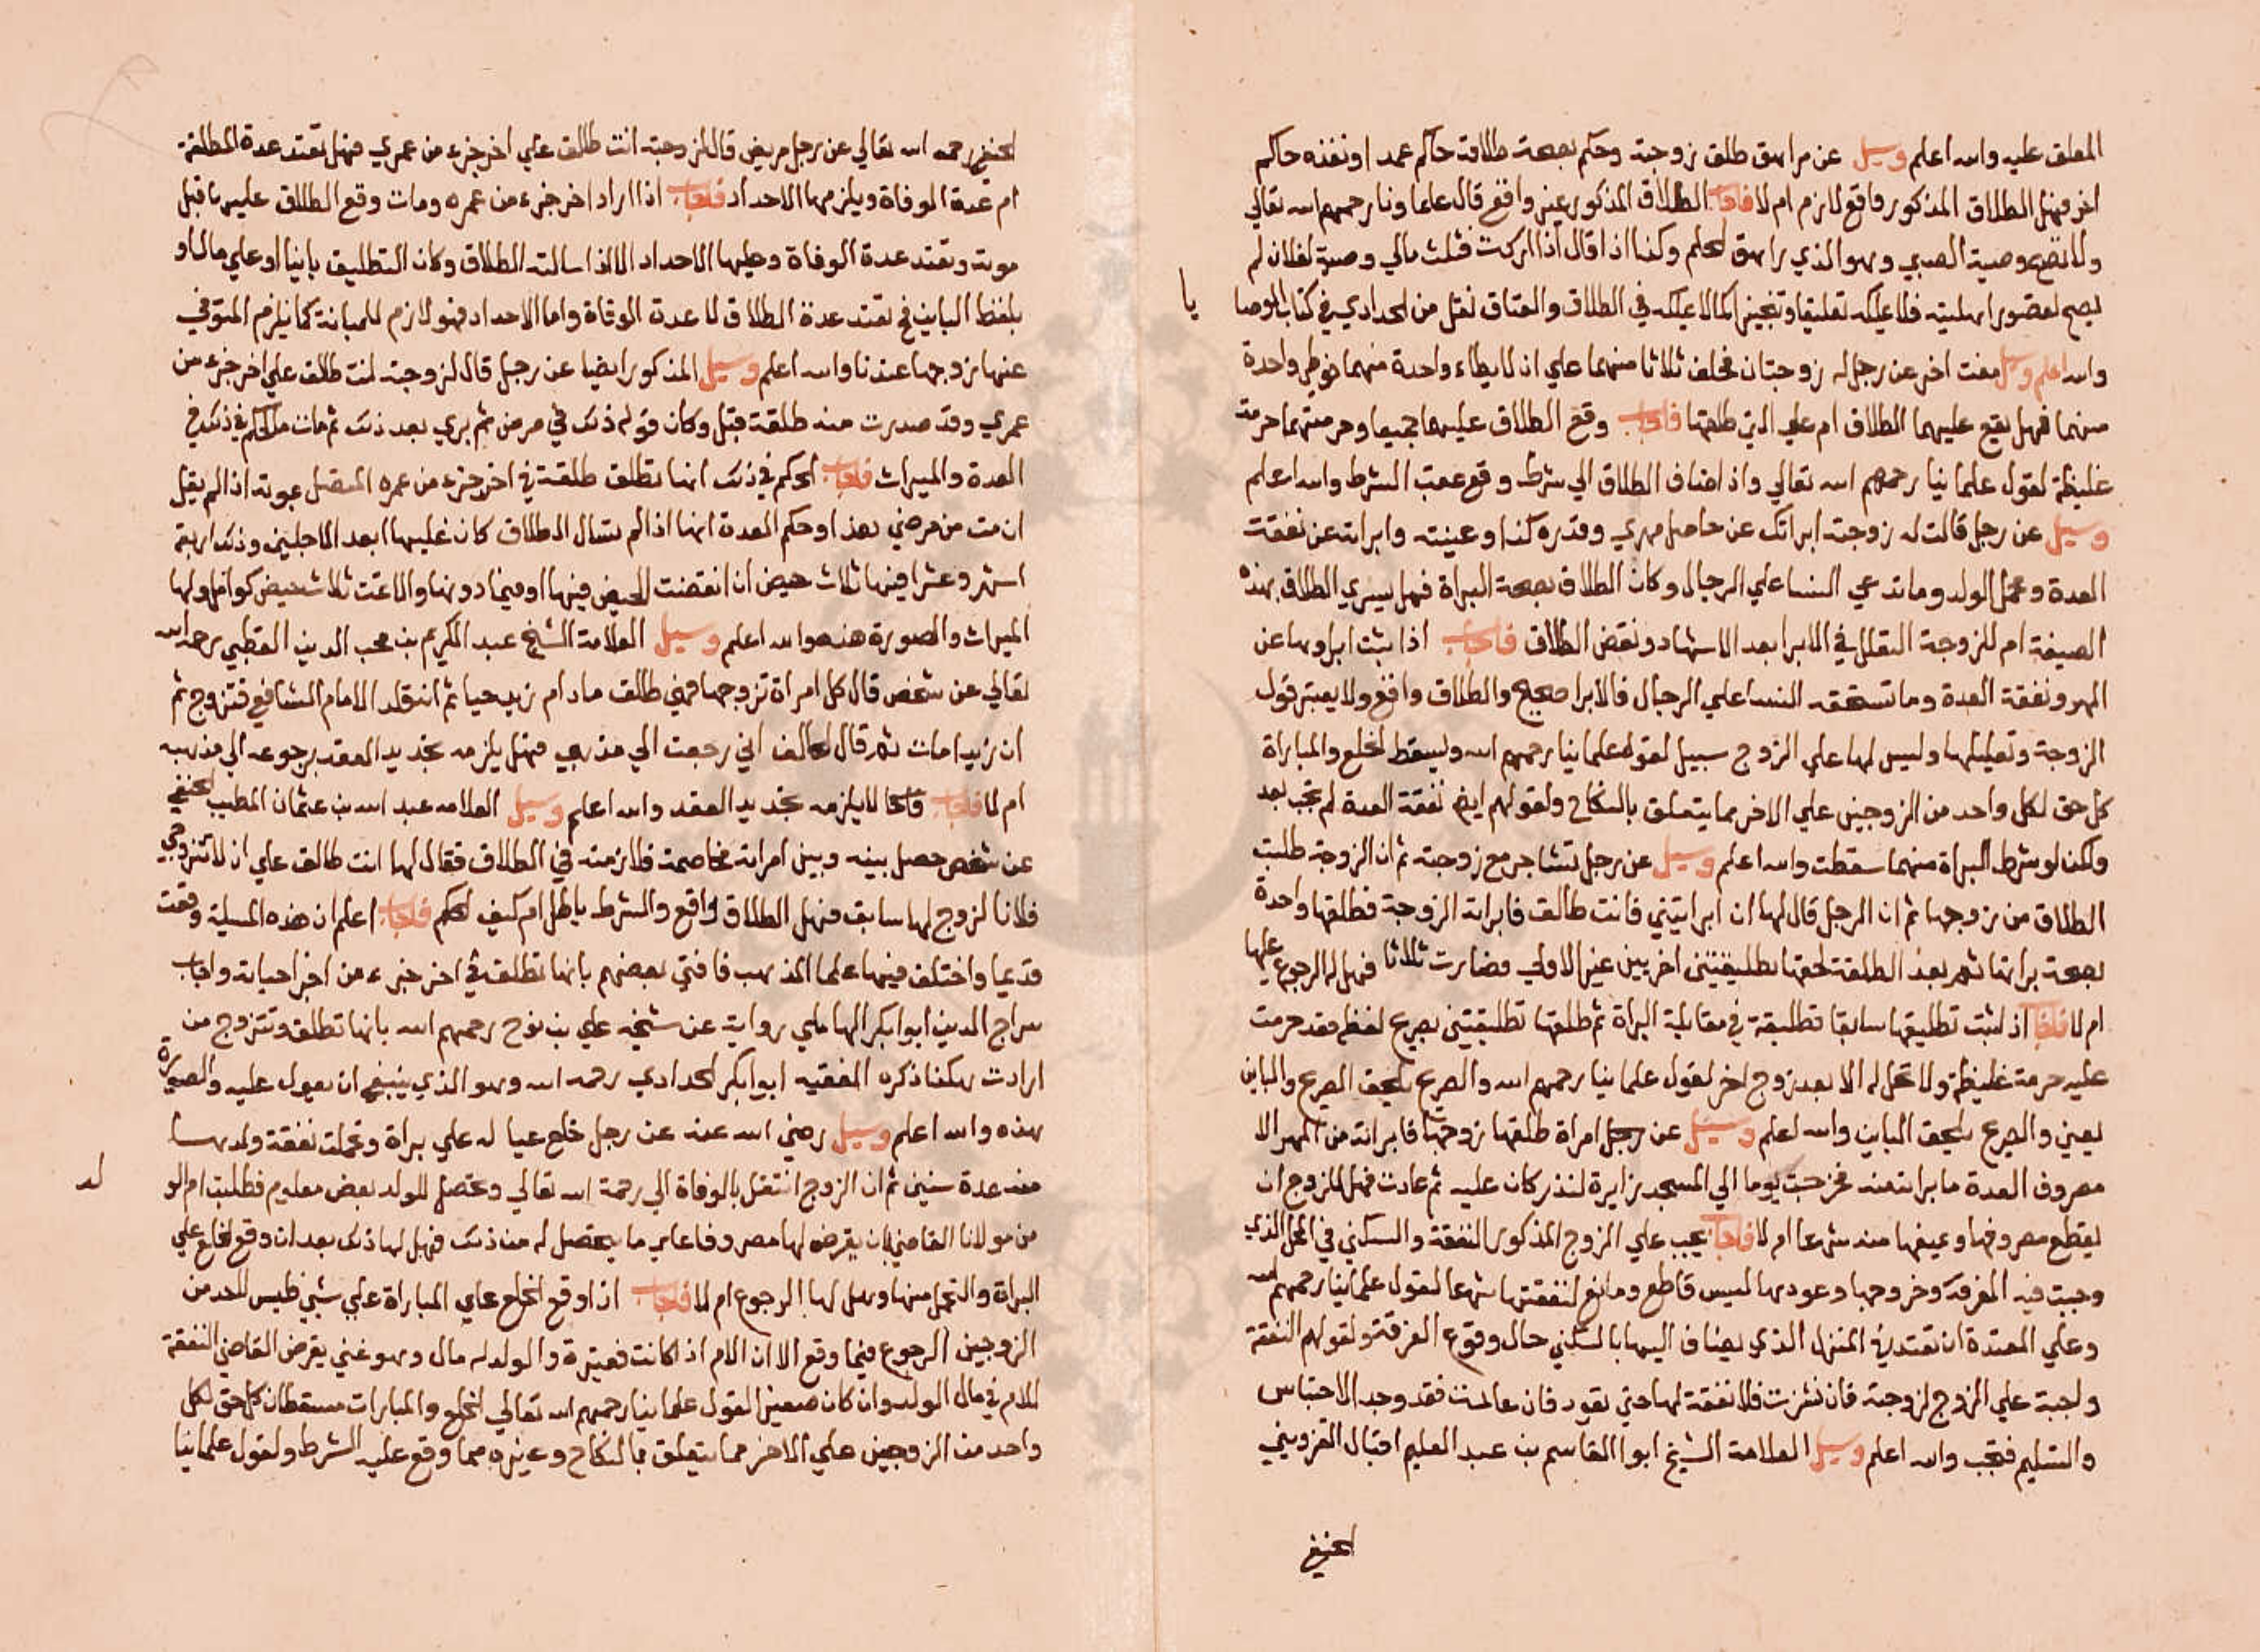 المعلق عليه والله اعلم وسيل عن مراهق طلق زوجته وحكم بصحة طلاقه حاكم عمدا ونفذه حاكم
اخر فهل الطلاق المذكور واقع لازم ام لا فاجاب الطلاق المذكور غير واقع قال علماونا رحمهم الله تعالي
ولا تصح وصية الصبي وهو الذي راهق الحلم وكذا اذا قال اذا ادركت فثلث مالي وصية لفلان لم
يصح لقصور اهليته فلا يملكه تعليقا وتنجيزا كما لا يملكه في الطلاق والعتاق نقل من الحدادي في كتاب الوصا
يا
والله اعلم وسيل مفت اخر عن رجل له زوجتان فحلف ثلاثا منهما علي ان لا يطاء واحدة منهما فوطي واحدة
منهما فهل يقع عليهما الطلاق ام علي التي طلقها فاجاب وقع الطلاق عليهما جميعا وحرمتهما حرمة
غليظة لقول علماينا رحمهم الله تعالي واذا اضاف الطلاق الي شرط وقع عقب الشرط والله اعلم
وسيل عن رجل قالت له زوجته ابراتك عن حاصل مهري وقدره كذا وعينته وابراته عن نفقة
العدة وحمل الولد وما تدعي النسا علي الرجال وكان الطلاق بصحة البراة فهل يسري الطلاق بهذه
الصيغة ام للزوجة التعلل في الابرا بعد الاشهاد ونقض الطلاق فاجاب اذا ثبت ابراوها عن
المهر ونفقة العدة وما تستحقه النسا علي الرجال فالابرا صحيح والطلاق واقع ولا يعتبر قول
الزوجة وتعليلها وليس لها علي الزوج سبيل لقول علماينا رحمهم الله ويسقط الخلع والمباراة
كل حق لكل واحد من الزوجين علي الاخر مما يتعلق بالنكاح ولقولهم ايضا نفقة العدة لم تجب بعد
ولكن لو شرط البراة منهما سقطت والله اعلم وسيل عن رجل تشاجر مع زوجته ثم ان الزوجة طلبت
الطلاق من زوجها ثم ان الرجل قال لها ان ابراتيني فانت طالق فابراته الزوجة فطلقها واحدة
بصحة براتها ثم بعد الطلقة لحقها بطليقتين اخريين غير الاولي فصارت ثلاثا فهل له الرجوع عليها
ام لا فاجاب اذا ثبت تطليقها سابقا تطليقة في مقابلة البراة ثم طلقها تطليقتين بصريح لفظه فقد حرمت
عليه حرمة غليظة ولا تحل له الا بعد زوج اخر لقول علماينا رحمهم الله والصريح يلحق الصريح والباين
يعني والصريح يلحق الباين والله اعلم وسيل عن رجل امراة طلقها زوجها فابراته من المهر الا
مصروف العدة ما براته منه فخرجت يوما الي المسجد زايرة لنذر كان عليه ثم عادت فهل للزوج ان
يقطع مصروفها ويمنعها منه شرعا ام لا فاجاب يجب علي الزوج المذكور النفقة والسكني في المحل الذي
وجبت فيه الفرقة وخروجها وعودها ليس قاطع ومانع لنفقتها شرعا لقول علماينا رحمهم الله
وعلي المعتدة ان تعتد في المنزل الذي يضاف اليها بالسكني حال وقوع الفرقة ولقولهم النفقة
واجبة علي الزوج لزوجته فان نشزت فلا نفقة لها حتي تعود فان عالمت فقد وجد الاحتباس
والتسليم فتجب والله اعلم وسيل العلامة الشيخ ابوا القاسم بن عبد العليم اقبال القزويني
الحنفي
الحنفي رحمه الله تعالي عن رجل مريض قال لزوجته انت طالق علي اخر جزء من عمري فهل تعتد عدة المطلقة
ام عدة الوفاة ويلزمها الاحداد فاجاب اذا اراد اخر جزء من عمره ومات وقع الطلاق عليها قبل
موته وتعتد عدة الوفاة وعليها الاحداد الا اذا سالته الطلاق وكان التطليق باينا او علي مال او
بلفظ الباين فح تعتد عدة الطلاق لا عدة الوفاة واما الاحداد فهو لازم للمبانة كما يلزم المتوفي
عنها زوجها عندنا والله اعلم وسيل المذكور ايضا عن رجل قال لزوجته انت طالق علي اخر جزء من
عمري وقد صدرت منه طلقة قبل وكان قوله ذلك في مرض ثم بري بعد ذلك ثم مات ما الحكم في ذلك في
العدة والميراث فاجاب الحكم في ذلك انها تطلق طلقة في اخر جزء من عمره المتصل بموته اذا لم يقل
ان مت من مرضي هذا وحكم العدة انها اذا لم تسال الطلاق كان عليها ابعد الاجلين وذلك اربعة
اشهر وعشرا فيها ثلاث حيض ان انقضت الحيض فيها او فيما دونها والا عدت ثلاث حيض كوامل ولها
الميراث والصورة هذه والله اعلم وسيل العلامة الشيخ عبد الكريم بن محب الدين القطبي رحمه الله
تعالي عن شخص قال كل امراة تزوجها فهي طالق مادام زيد حيا ثم انه قلد الامام الشافعي فتزوج ثم
ان زيدا مات ثم قال الحالف اني رجعت الي مذهبي فهل يلزمه تجديد العقد برجوعه الي مذهبه
ام لا فاجاب لا يلزمه تجديد العقد والله اعلم وسيل العلامه عبد الله بن عثمان المطيب الحنفي
عن شخص حصل بينه وبين امراته مخاصمة فلازمته في الطلاق فقال لها انت طالق علي ان لا تتزوجي
فلانا لزوج لها سابق فهل الطلاق واقع والشرط باطل ام كيف الحكم فاجاب اعلم ان هذه المسيلة وقعت
قديما واختلف فيها علما المذهب فافتي بعضهم بانها تطلق في اخر جزء من اخر احياته واجاب
سراج الدين ابوا بكر الهاملي رواية عن شيخه علي بن نوح رحمهم الله بانها تطلق وتتزوج من
ارادت هكذا ذكره الفقيه ابوا بكر الحدادي رحمه الله وهو الذي ينبغي ان يعول عليه والصورة
هذه والله اعلم وسيل رضي الله عنه عن رجل خلع عيا له علي براة وتحملت نفقة ولدها
منه عدة سنين ثم ان الزوج انتقل بالوفاة الي رحمة الله تعالي وتحصل للولد بعض معلوم فطلبت ام الو
لد
من مولانا القاضي بان يفرض لها مصروفا علي ما يحصل له من ذلك فهل لها ذلك بعد ان وقع الخلع علي
البراة والتحمل منها وهل لها الرجوع ام لا فاجاب اذا وقع الخلع علي المباراة علي شيي فليس لاحد من
الزوجين الرجوع فيما وقع الا ان الام اذا كانت فقيرة والولد له مال وهو غني يفرض القاضي النفقة
للام في مال الولد وان كان صغيرا لقول علماينا رحمهم الله تعالي الخلع والمبارات مسقطان كل حق لكل
واحد من الزوجين علي الاخر مما يتعلق بالنكاح وغيره مما وقع عليه الشرط ولقول علماينا